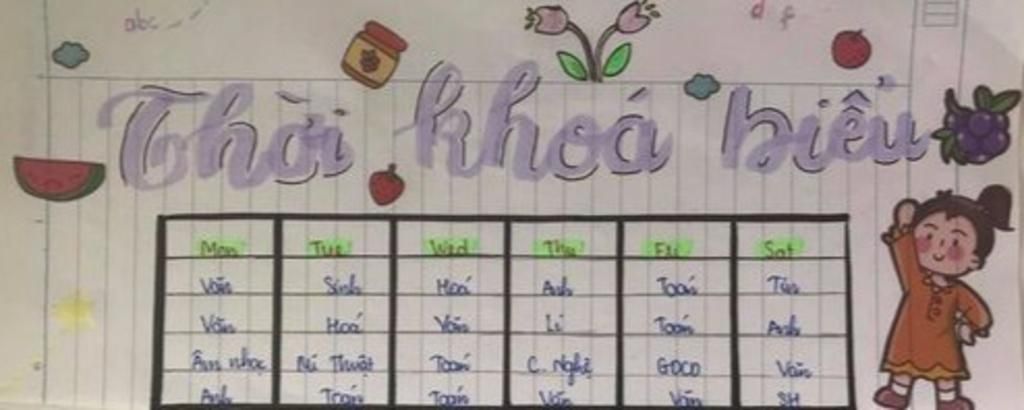 abc
d f
Thời khoá biểu
Mon Tue Wed Thu Fri Sat
Văn Sinh Hoá Anh Toán Tin
Văn Hoá Văn Lí Toán Anh
Âm nhạc Mĩ Thuật Toán C. Nghệ GDCD Văn
Anh Toán Toán Văn Văn SH